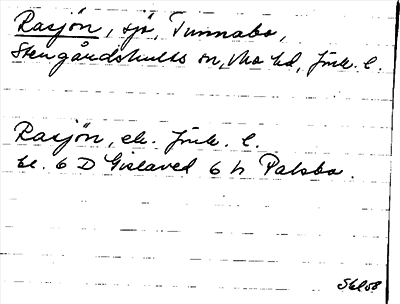 Rasjön, sjö, Tunnabo,
Stengårdshults sn, Mo hd, Jönk. l.
Rasjön, ek. Jönk. l.
bl. 6 D Gislaved 6 h Palsbo.